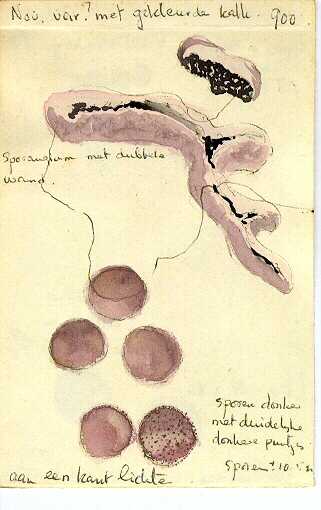 Nov. var.? met gekleurde kalk. 900
Sporangium met dubbele
wand.
sporen donker
met duidelijke
donkere puntjes
sporen ± 10
aan een kant lichte